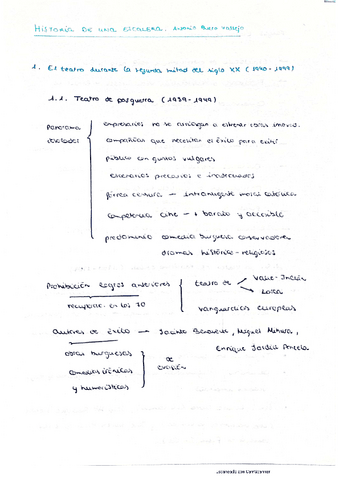 HISTORIA DE UNA ESCALERA. Antonio Buero Vallejo
1. El teatro durante la segunda mitad del siglo XX (1940-1999)
1.1. Teatro de posguerra (1939-1949)
Panorama desolador
empresarios no se arriesgan a estrenar obras
compañías que necesitan el éxito para
público con gustos vulgares
escenarios precarios e inadecuados
férrea censura → intransigente moral católica
competencia cine → + barato y accesible
predominio comedia burguesa conservadora
dramas histórico-religiosos
Prohibición logros anteriores
recuperar en los 70
teatro de
Valle-Inclán
Lorca
vanguardias europeas
Autores de éxito → Jacinto Benavente, Miguel Mihura,
Enrique Jardiel Poncela
obras burguesas
comedias irónicas
y humorísticas
de evasión
Escaneado con CamScanner